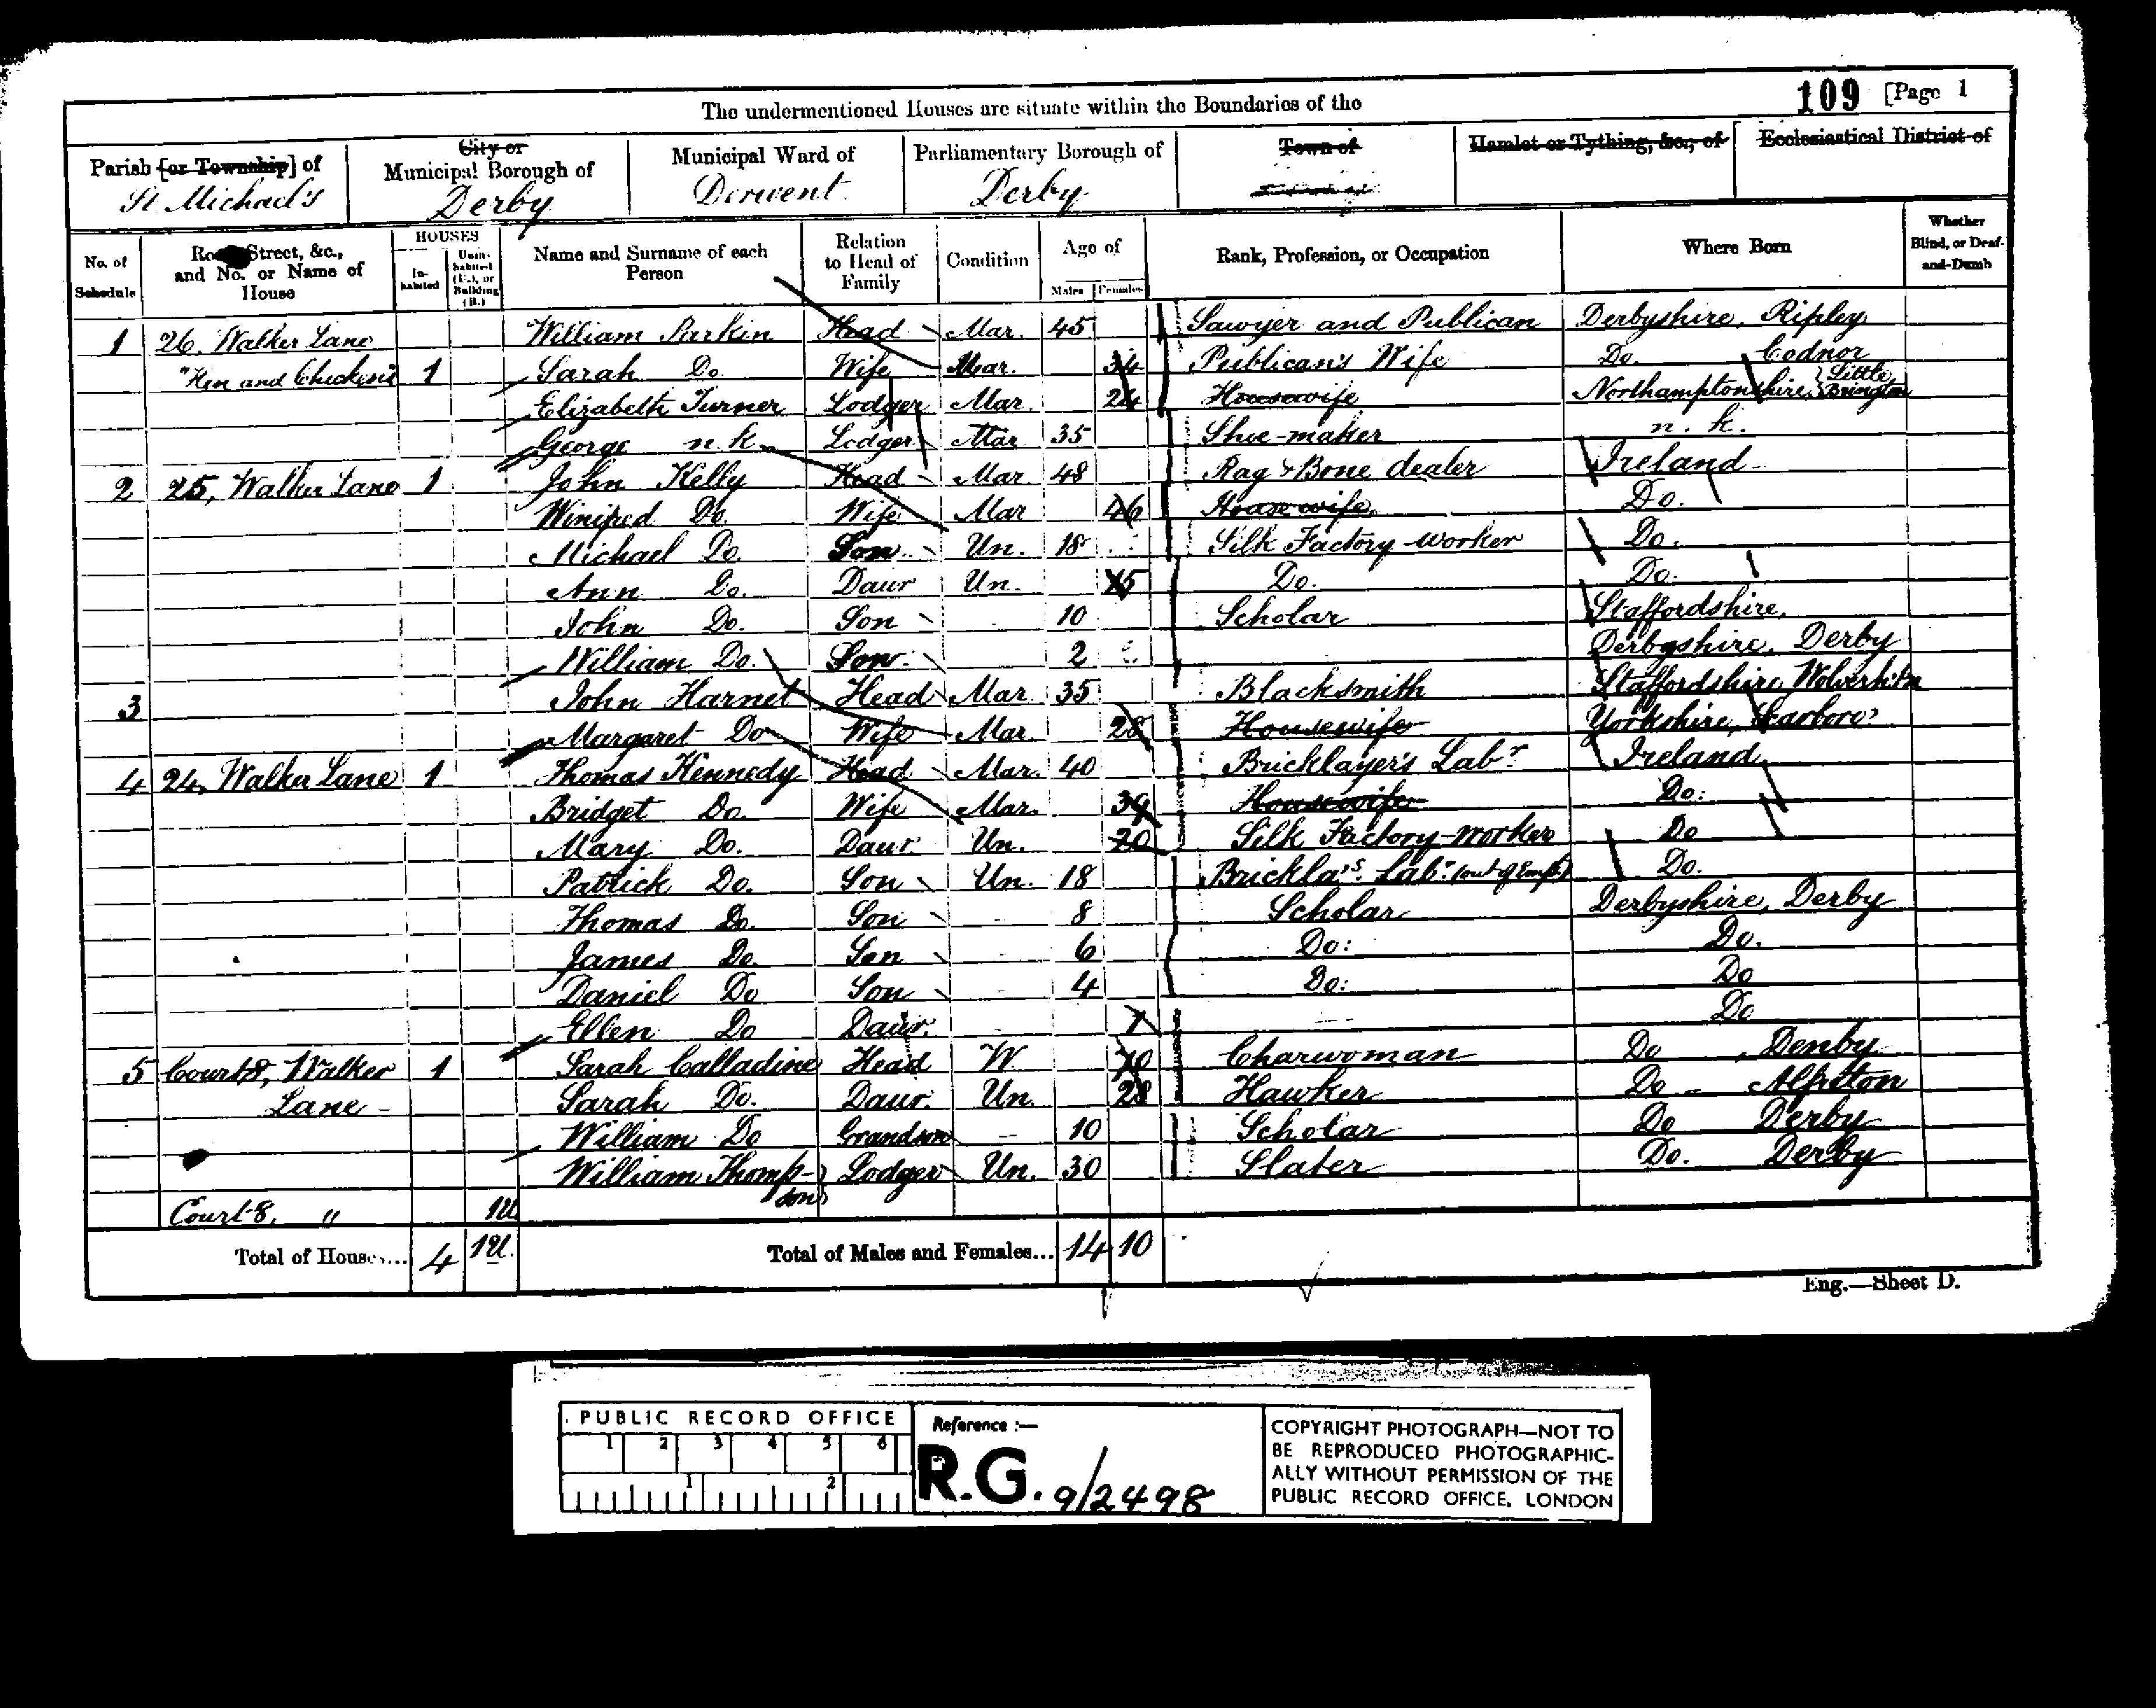 The undermentioned Houses are situate within the Boundaries of the 109 [Page 1
Parish [or Township] of St. Michael's
City or Municipal Borough of Derby
Municipal Ward of Derwent
Parliamentary Borough of Derby
Town of
Hamlet or Tything, &c., of
Ecclesiastical District of
No. of Schedule
Road, Street, &c., and No. or Name of House
HOUSES
Inhabited
Uninhabited (U.), or Building (B.)
Name and Surname of each Person
Relation to Head of Family
Condition
Age of
Males Females
Rank, Profession, or Occupation
Where Born
Whether Blind, or Deaf-and-Dumb
1 26, Walker Lane William Parkin Head Mar. 45 Sawyer and Publican Derbyshire, Ripley
"Hen and Chickens" 1 Sarah Do. Wife Mar. 34 Publican's Wife Do. Codnor
Elizabeth Turner Lodger Mar. 24 Housewife Northamptonshire, Little Brington
George n.k. Lodger Mar 35 Shoe-maker n.k.
2 25, Walker Lane 1 John Kelly Head Mar. 48 Rag & Bone dealer Ireland
Winifred Do. Wife Mar 46 Housewife Do.
Michael Do. Son Un. 18 Silk Factory worker Do.
Ann Do. Daur Un. 15 Do. Do.
John Do. Son 10 Scholar Staffordshire,
William Do. Son 2 Derbyshire, Derby
3 John Harnet Head Mar. 35 Blacksmith Staffordshire,
Margaret Do Wife Mar. 28 Housewife Yorkshire, Scarboro'
4 24, Walker Lane 1 Thomas Kennedy Head Mar. 40 Bricklayer's Labr Ireland
Bridget Do. Wife Mar. 39 Housewife Do:
Mary Do. Daur. Un. 20 Silk Factory-worker Do
Patrick Do. Son Un. 18 Brickla's. Labr (out of Emp.) Do.
Thomas Do. Son 8 Scholar Derbyshire, Derby
James Do. Son 6 Do: Do.
Daniel Do Son 4 Do: Do
Ellen Do Daur. 1 Do
5 Court 8, Walker 1 Sarah Calladine Head W 70 Charwoman Do, Denby
Lane - Sarah Do. Daur. Un. 28 Hawker Do - Alfreton
William Do Grandson 10 Scholar Do Derby
William Thompson Lodger Un. 30 Slater Do. Derby
Court 8, " 1U
Total of Houses... 4 1U. Total of Males and Females... 14 10
Eng.—Sheet D.
PUBLIC RECORD OFFICE
1 2 3 4 5 6
1 2
Reference :—
R.G. 9/2498
COPYRIGHT PHOTOGRAPH—NOT TO
BE REPRODUCED PHOTOGRAPHIC-
ALLY WITHOUT PERMISSION OF THE
PUBLIC RECORD OFFICE, LONDON